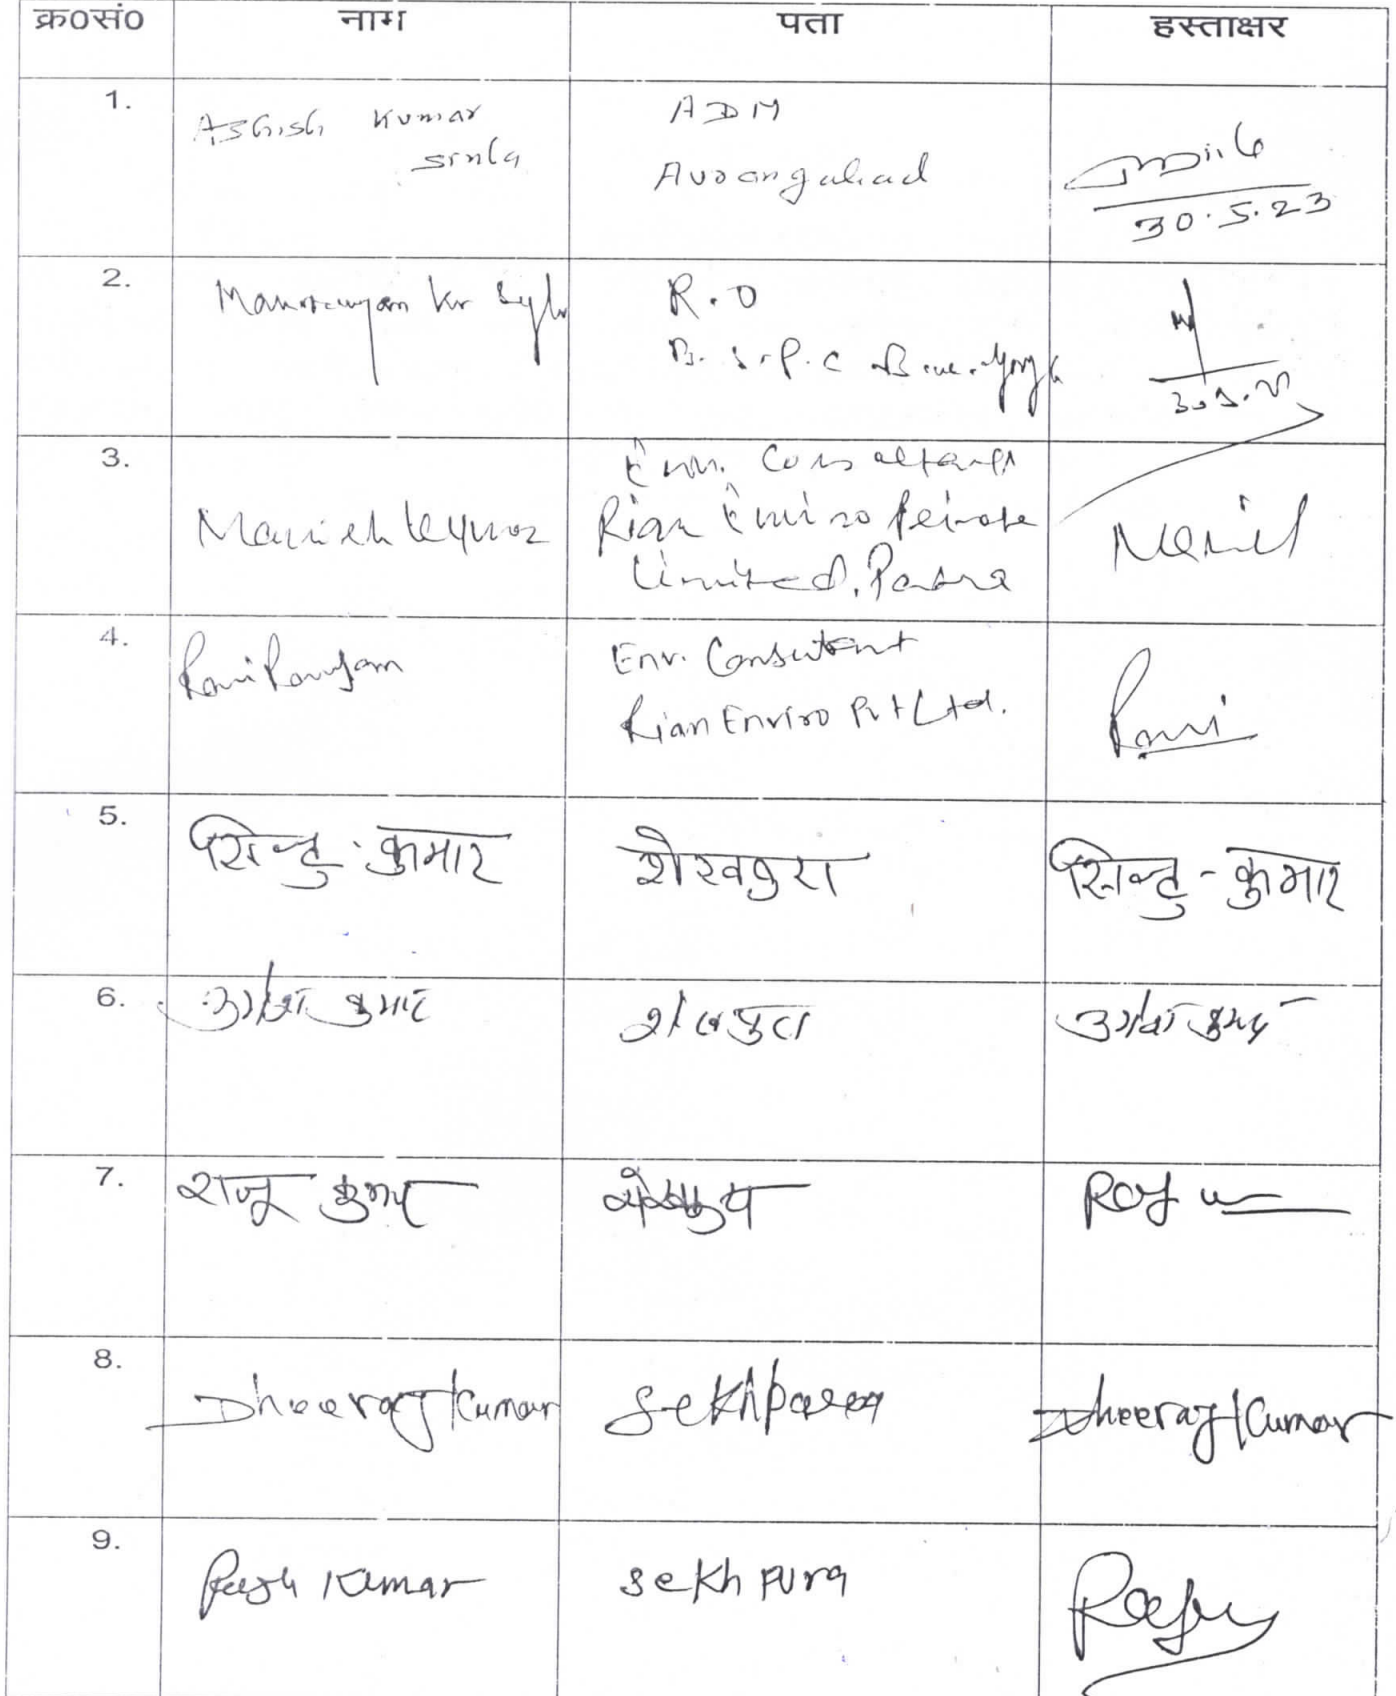 क्र०सं० नाम पता हस्ताक्षर
1. Ashish Kumar Sinha ADM Aurangabad
30.5.23
2. Kr R.O
B.S.P.C
3. Manish Kumar Env. Consultant
Rian Enviro Private
Limited, Patna
Manish
4. Ravi Ranjan Env. Consultant
Rian Enviro Pvt Ltd.
Ravi
5. सिन्टु कुमार शेखपुरा सिन्टु - कुमार
6. कुमार शेखपुरा कुमार
7. राजू कुमार शेखपुरा Raju
8. Dheeraj Kumar Sekhpura Dheeraj Kumar
9. Kumar Sekhpura